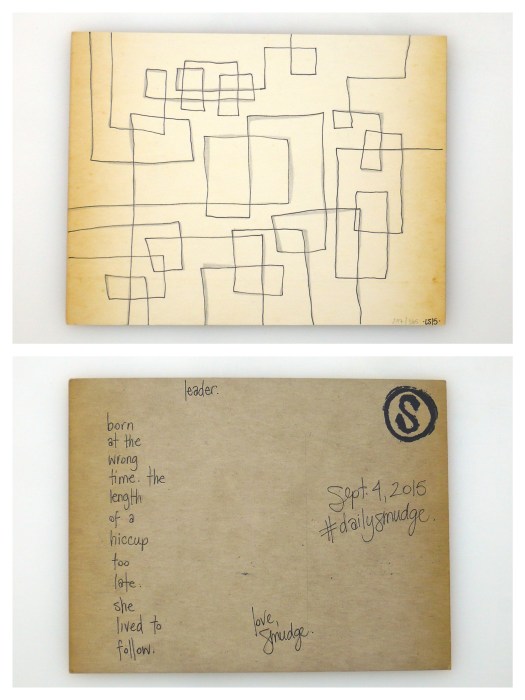 ·CS15·
leader.
born
at the
wrong
time. the
length
of a
hiccup
too
late.
she
lived to
follow.
S
Sept. 4, 2015
#dailysmudge.
love,
smudge.